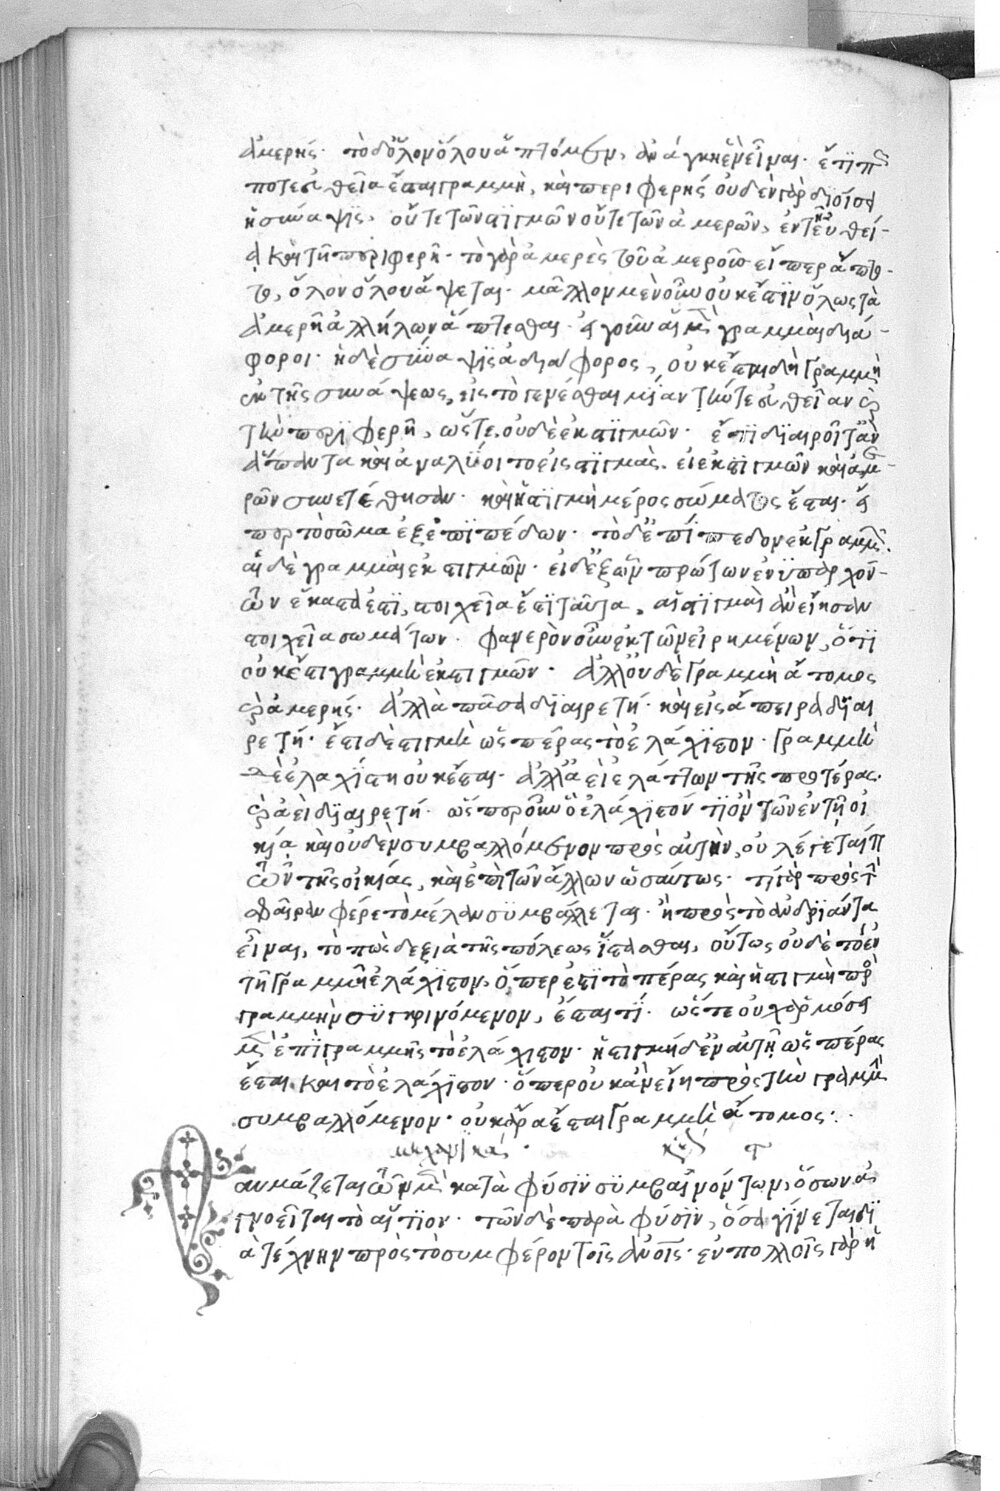 ἀμερής· τὸ δ' ὅλον ὅλου ἁπτόμενον, ἀνάγκη ἓν εἶναι. ἔτι π
ποτε εὐθεῖα ἔσται γραμμὴ, καὶ περιφερής οὐδὲν γὰρ διοίσει
ἡ σύναψις, οὔτε τῶν στιγμῶν οὔτε τῶν ἀμερῶν, ἐν τε τῆ εὐθεί-
α καὶ τῆ περιφερῆ· τὸ γὰρ ἀμερὲς τοῦ ἀμεροῦς εἴπερ ἅπτε-
ται, ὅλον ὅλου ἅψεται. μᾶλλον μὲν οὖν οὐκ ἔστιν ὅλως τὰ
ἀμερῆ ἀλλήλων ἅπτεσθαι· εἰ γοῦν αἱ μὲν γραμμαὶ διά-
φοροι· ἡ δὲ σύναψις ἀδιάφορος, οὐκ ἔσται δὴ γραμμὴ
ἐκ τῆς συνάψεως, εἰς τὸ γενέσθαι μίαν τήν τε εὐθεῖαν καὶ
τὴν περιφερῆ, ὥστε οὐδὲ ἐκ στιγμῶν· ἔτι διαιροῖτ' ἂν
ἅπαντα καὶ ἀναλύοιτο εἰς στιγμάς. εἰ ἐκ στιγμῶν καὶ ἀμε-
ρῶν συνετέθησαν· καὶ ἡ στιγμὴ μέρος σώματος ἔσται· εἴ
περ τὸ σῶμα ἐξ ἐπιπέδων· τὸ δὲ ἐπίπεδον ἐκ γραμμῶν.
αἱ δὲ γραμμαὶ ἐκ στιγμῶν· εἰ δὲ ἐξ ὧν πρώτων ἐνυπαρχόν-
των ἕκαστά ἐστι, στοιχεῖα ἔστι ταῦτα, αἱ στιγμαὶ ἂν εἴησαν
στοιχεῖα σωμάτων. φανερὸν οὖν ἐκ τῶν εἰρημένων, ὅτι
οὐκ ἔστι γραμμὴ ἐκ στιγμῶν· ἀλλ' οὐδὲ γραμμὴ ἄτομος
καὶ ἀμερής· ἀλλὰ πᾶσα διαιρετή· καὶ εἰς ἄπειρα διαι
ρετή· ἔστι δὲ στιγμὴ ὡς πέρας τὸ ἐλάχιστον· γραμμὴ
δὲ ἐλαχίστη οὐκ ἔσται· ἀλλὰ ἀεὶ ἐλάττων τῆς προτέρας.
καὶ ἀεὶ διαιρετή· ὥσπερ οὖν ὃ ἐλάχιστόν τι ὂν τῶν ἐν τῆ οἰ
κία καὶ οὐδὲν συμβαλλόμενον πρὸς αὐτὴν, οὐ λέγεταί τι
ὢν τῆς οἰκίας, καὶ ἐπὶ τῶν ἄλλων ὡσαύτως· τί γὰρ πρὸς τὴν
σφαῖραν φέρε τὸ μέλαν συμβάλλεται· ἢ πρὸς τὸ ἀνδριάντα
εἶναι, τὸ πὼς δεξιὰ τῆς πόλεως ἵστασθαι, οὕτως οὐδὲ τὸ ἐν
τῆ γραμμῆ ἐλάχιστον, ὅπερ ἐστὶ τὸ πέρας καὶ ἡ στιγμὴ πρὸς
γραμμὴν συγκρινόμενον, ἔσται τί. ὥστε οὐχ ἁρμόσει
μὲν ἐπὶ γραμμῆς τὸ ἐλάχιστον· ἡ στιγμή δ' ἐν αὐτῆ ὡς πέρας
ἔσται καὶ τὸ ἐλάχιστον· ὅπερ οὐκ ἂν εἴη πρὸς τὴν γραμμὴν
συμβαλλόμενον· οὐκ ἄρα ἔσται γραμμὴ ἄτομος:.
μηχανικά·
Θαυμάζεται τῶν μὲν κατὰ φύσιν συμβαινόντων, ὅσων ἀ
γνοεῖται τὸ αἴτιον· τῶν δὲ παρὰ φύσιν, ὅσα γίνεται δι
ὰ τέχνην πρὸς τὸ συμφέρον τοῖς ἀνοις· ἐν πολλοῖς γὰρ ἡ